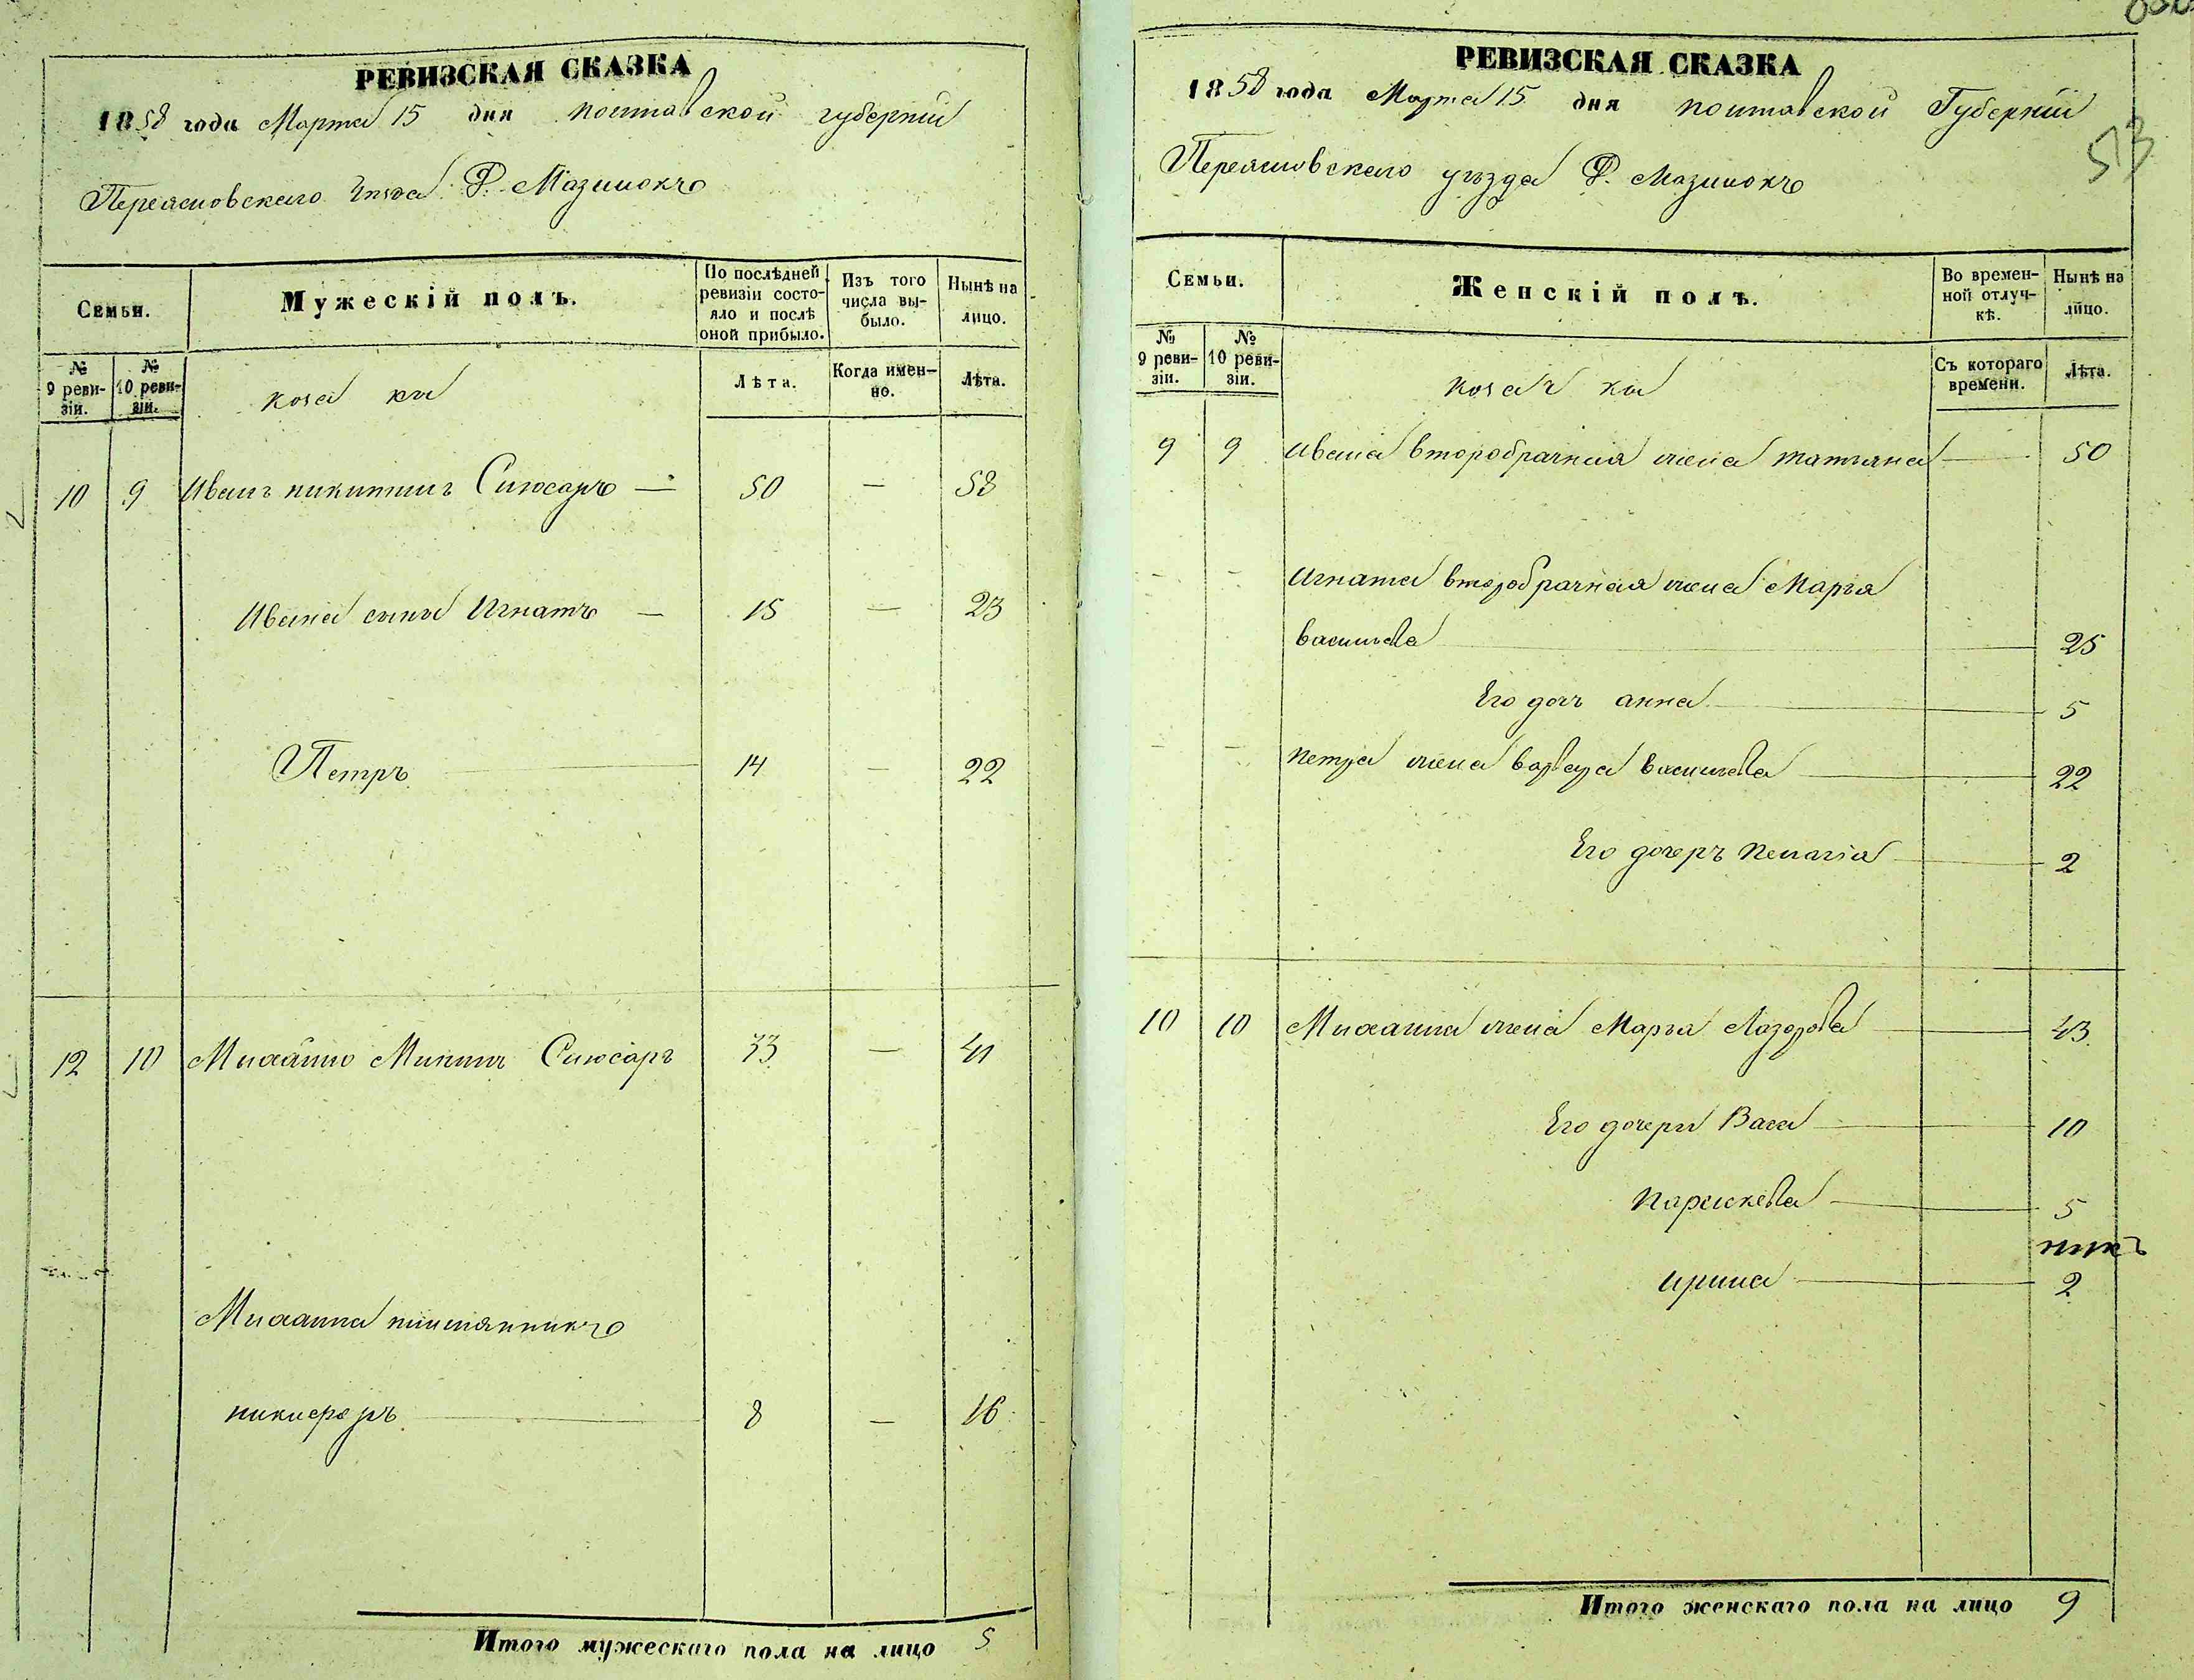 РЕВИЗСКАЯ СКАЗКА
1858 года Марта 15 дня полтавской губернии
Переясловского уезда Д. Мазинокъ
Семьи.
Мужескій полъ.
По послѣдней ревизіи состояло и послѣ оной прибыло.
Изъ того числа выбыло.
Нынѣ на лицо.
№ 9 ревизіи.
№ 10 ревизіи.
коза ки
Лѣта.
Когда именно.
Лѣта.
10 9 Иванъ никитинъ Слюсаръ — 50 — 58
Ивана сыны Игнатъ — 15 — 23
Петръ 14 — 22
12 10 Михайло Микит Слюсаръ 33 — 41
Михаила племянникъ
никифоръ 8 — 16
Итого мужескаго пола на лицо 5
РЕВИЗСКАЯ СКАЗКА
1858 года Марта 15 дня полтавской Губерніи
53
Переясловскаго уѣзда Д. Мазинокъ
Семьи.
Женскій полъ.
Во временной отлучкѣ.
Нынѣ на лицо.
№ 9 ревизіи.
№ 10 ревизіи.
козач ки
Съ котораго времени.
Лѣта.
9 9 Ивана второбрачная жена татьяна — 50
Игната второбрачная жена Марья
васильева 25
Его доч анна 5
петра жена варвара васильева 22
Его дочеръ пелагія 2
10 10 Михаила жена Марья Лазорова 43
Его дочери Васа 10
параскева 5
ирина 2
Итого женскаго пола на лицо 9